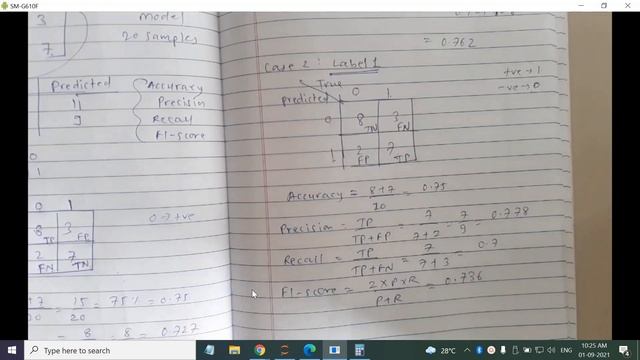 SM-G610F
3
7
model
20 samples
Predicted
11
9
Accuracy
Precisin
Recall
F1-score
0
1
0 1
8 TP 3 FP
2 FN 7 TN
0 → +ve
= 15/20 = 75% = 0.75
= 8 = 0.727
= 0.762
Case 2: Label 1
+ve → 1
-ve → 0
True
Predicted 0 1
0 8 TN 3 FN
1 2 FP 7 TP
Accuracy = 8+7/20 = 0.75
Precision = TP/TP+FP = 7/7+2 = 7/9 = 0.778
Recall = TP/TP+FN = 7/7+3 = 0.7
F1-score = 2×P×R/P+R = 0.736
Type here to search
28°C
ENG
10:25 AM
01-09-2021